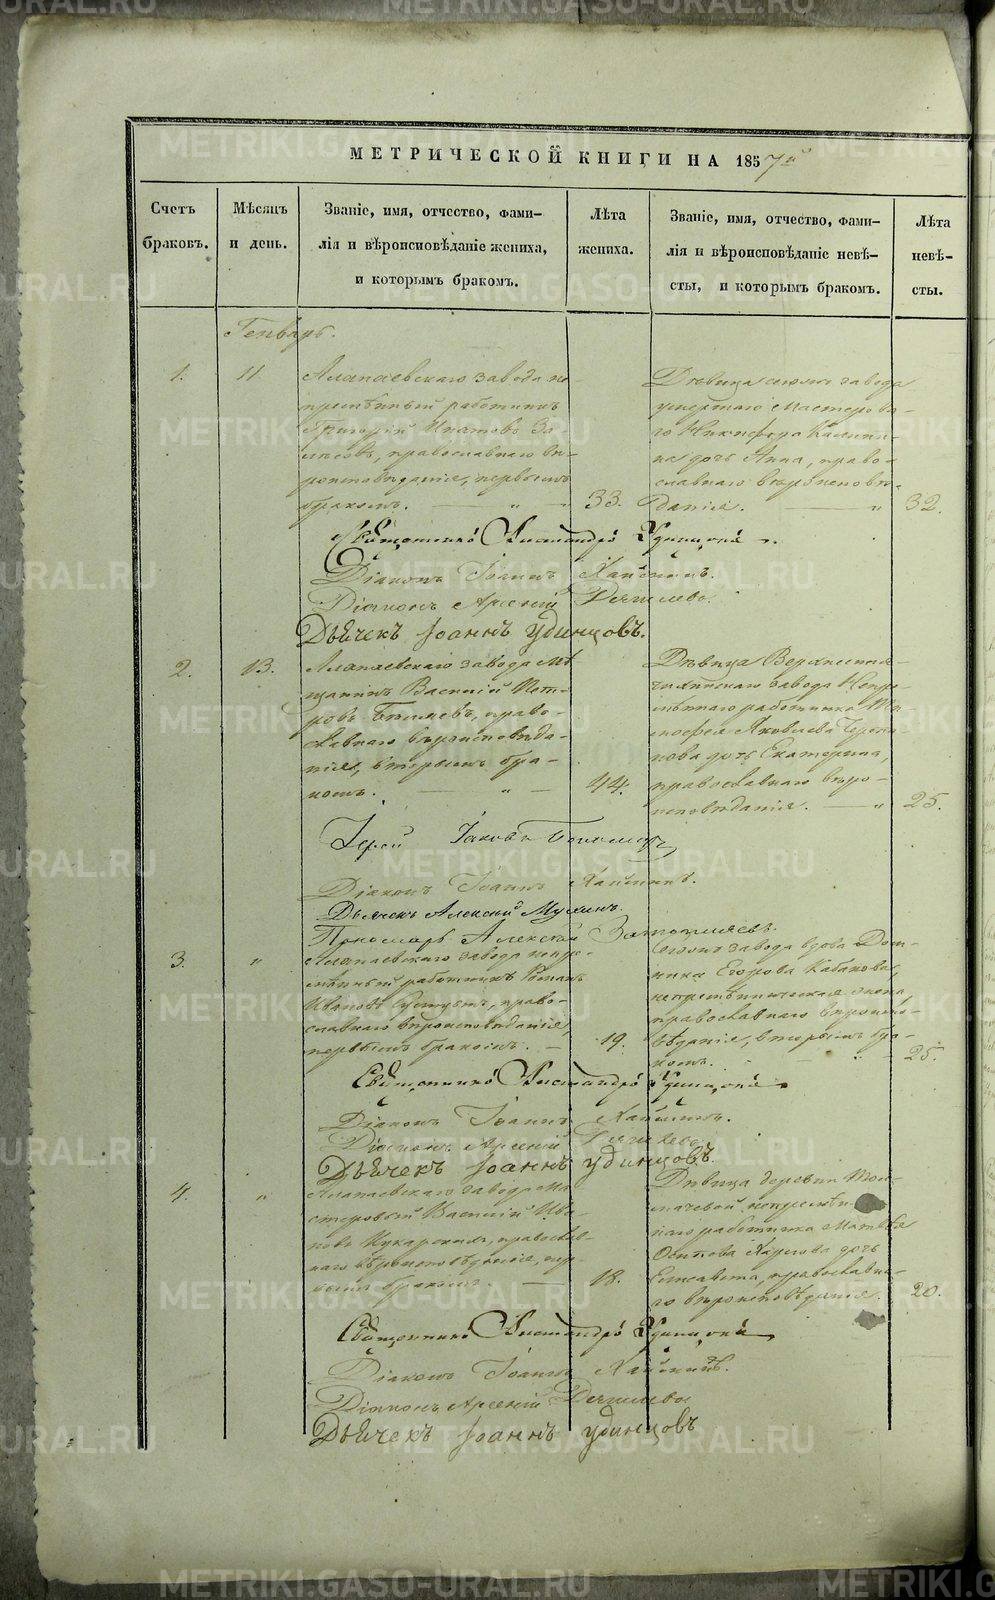 МЕТРИЧЕСКОЙ КНИГИ НА 1857й
Счетъ браковъ.
Мѣсяцъ и день.
Званіе, имя, отчество, фами-
лія и вѣроисповѣданіе жениха,
и которымъ бракомъ.
Лѣта жениха.
Званіе, имя, отчество, фами-
лія и вѣроисповѣданіе невѣ-
сты, и которымъ бракомъ.
Лѣта невѣ-
сты.
Генварь.
1.
11
Алапаевскаго завода не-
премѣнный работникъ
Григорій Ипатовъ
православнаго вѣ-
роисповѣданія, первымъ
бракомъ. — „ —
33.
Дѣвица сегожъ завода
умершаго Мастерова-
го Никифора Калини-
на дочь Анна, право-
славнаго вѣроисповѣ-
данія. — „
32.
Священникъ Александръ Удинцовъ.
Діаконъ Іоаннъ
Діаконъ Арсеній
Дьячекъ Іоаннъ Удинцовъ.
2.
13.
Алапаевскаго завода Мѣ-
щанинъ Василій Пет-
ровъ Бѣляевъ, право-
славнаго вѣроисповѣда-
нія, вторымъ бра-
комъ. — „ —
44.
Дѣвица Верхнесиня-
чихинскаго завода Непре-
мѣннаго работника
Яковлева
дочь Екатерина,
православнаго вѣро-
исповѣданія. — „
25.
Іерей Іаковъ
Діаконъ Іоаннъ
Дьячекъ Алексій Мухинъ.
Пономарь Алексій
3.
„
Алапаевскаго завода непре-
мѣнный работникъ Романъ
Ивановъ право-
славнаго вѣроисповѣданія,
первымъ бракомъ. —
19.
Сегожъ завода вдова Дом-
ника Егорова Кабакова,
непремѣнническая жена
православнаго вѣроиспо-
вѣданія, вторымъ бра-
комъ.
25.
Священникъ Александръ Удинцовъ.
Діаконъ Іоаннъ
Діаконъ Арсеній
Дьячекъ Іоаннъ Удинцовъ.
4.
„
Алапаевскаго завода Ма-
стеровый Василій Ива-
новъ православ-
наго вѣроисповѣданія, пер-
вымъ бракомъ. —
18.
Дѣвица деревни Тол-
мачевой, непремѣн-
наго работника Матвѣя
Осипова дочь
Елисавета, православна-
го вѣроисповѣданія.
20.
Священникъ Александръ Удинцовъ.
Діаконъ Іоаннъ
Діаконъ Арсеній
Дьячекъ Іоаннъ Удинцовъ
METRIKI.GASO-URAL.RU